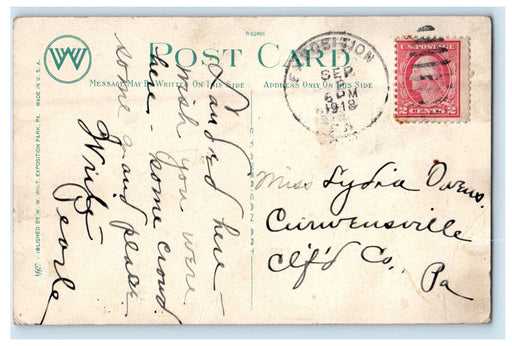 R-62495
POST CARD
MESSAGE MAY BE WRITTEN ON THIS SIDE
ADDRESS ONLY ON THIS SIDE
W
MADE IN U.S.A.
PUBLISHED BY W. W. WILT, EXPOSITION PARK, PA.
EXPOSITION
SEP
6 PM
1918
U.S. POSTAGE
2 CENTS 2
Landed here –
wish you were
here – some crowd
some grand place.
Write
Pearle
Miss Lydia Owens.
Curwensville
Clf'd Co.,
Pa